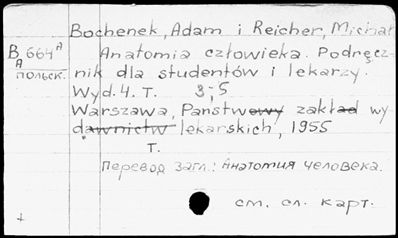 Bochenek, Adam i Reicher, Michał
B 664 A
A
польск.
Anatomia człowieka. Podręcz-
nik dla studentów i lekarzy.
Wyd. 4. T. 3; 5
Warszawa, Państwowy zakład wy
dawnictw lekarskich, 1955
T.
Перевод загл.: Анатомия человека.
см. сл. карт.